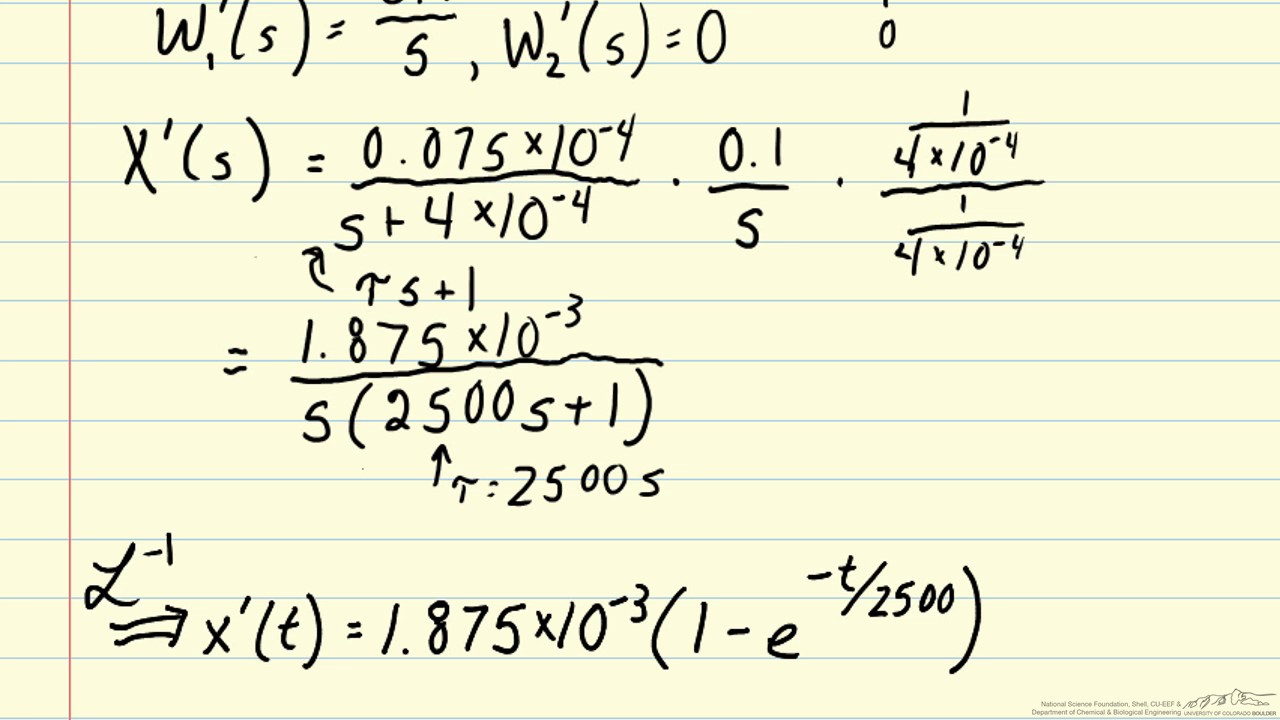 W₁'(s) = 0.1/s , W₂'(s) = 0
0
X'(s) = (0.075 × 10⁻⁴)/(s + 4 × 10⁻⁴) · 0.1/s · (1/(4 × 10⁻⁴))/(1/(4 × 10⁻⁴))
τs + 1
= (1.875 × 10⁻³)/(s(2500s + 1))
↑ τ = 2500 s
ℒ⁻¹ ⇒ x'(t) = 1.875 × 10⁻³(1 - e^(-t/2500))
National Science Foundation, Shell, CU-EEF &
Department of Chemical & Biological Engineering UNIVERSITY OF COLORADO BOULDER